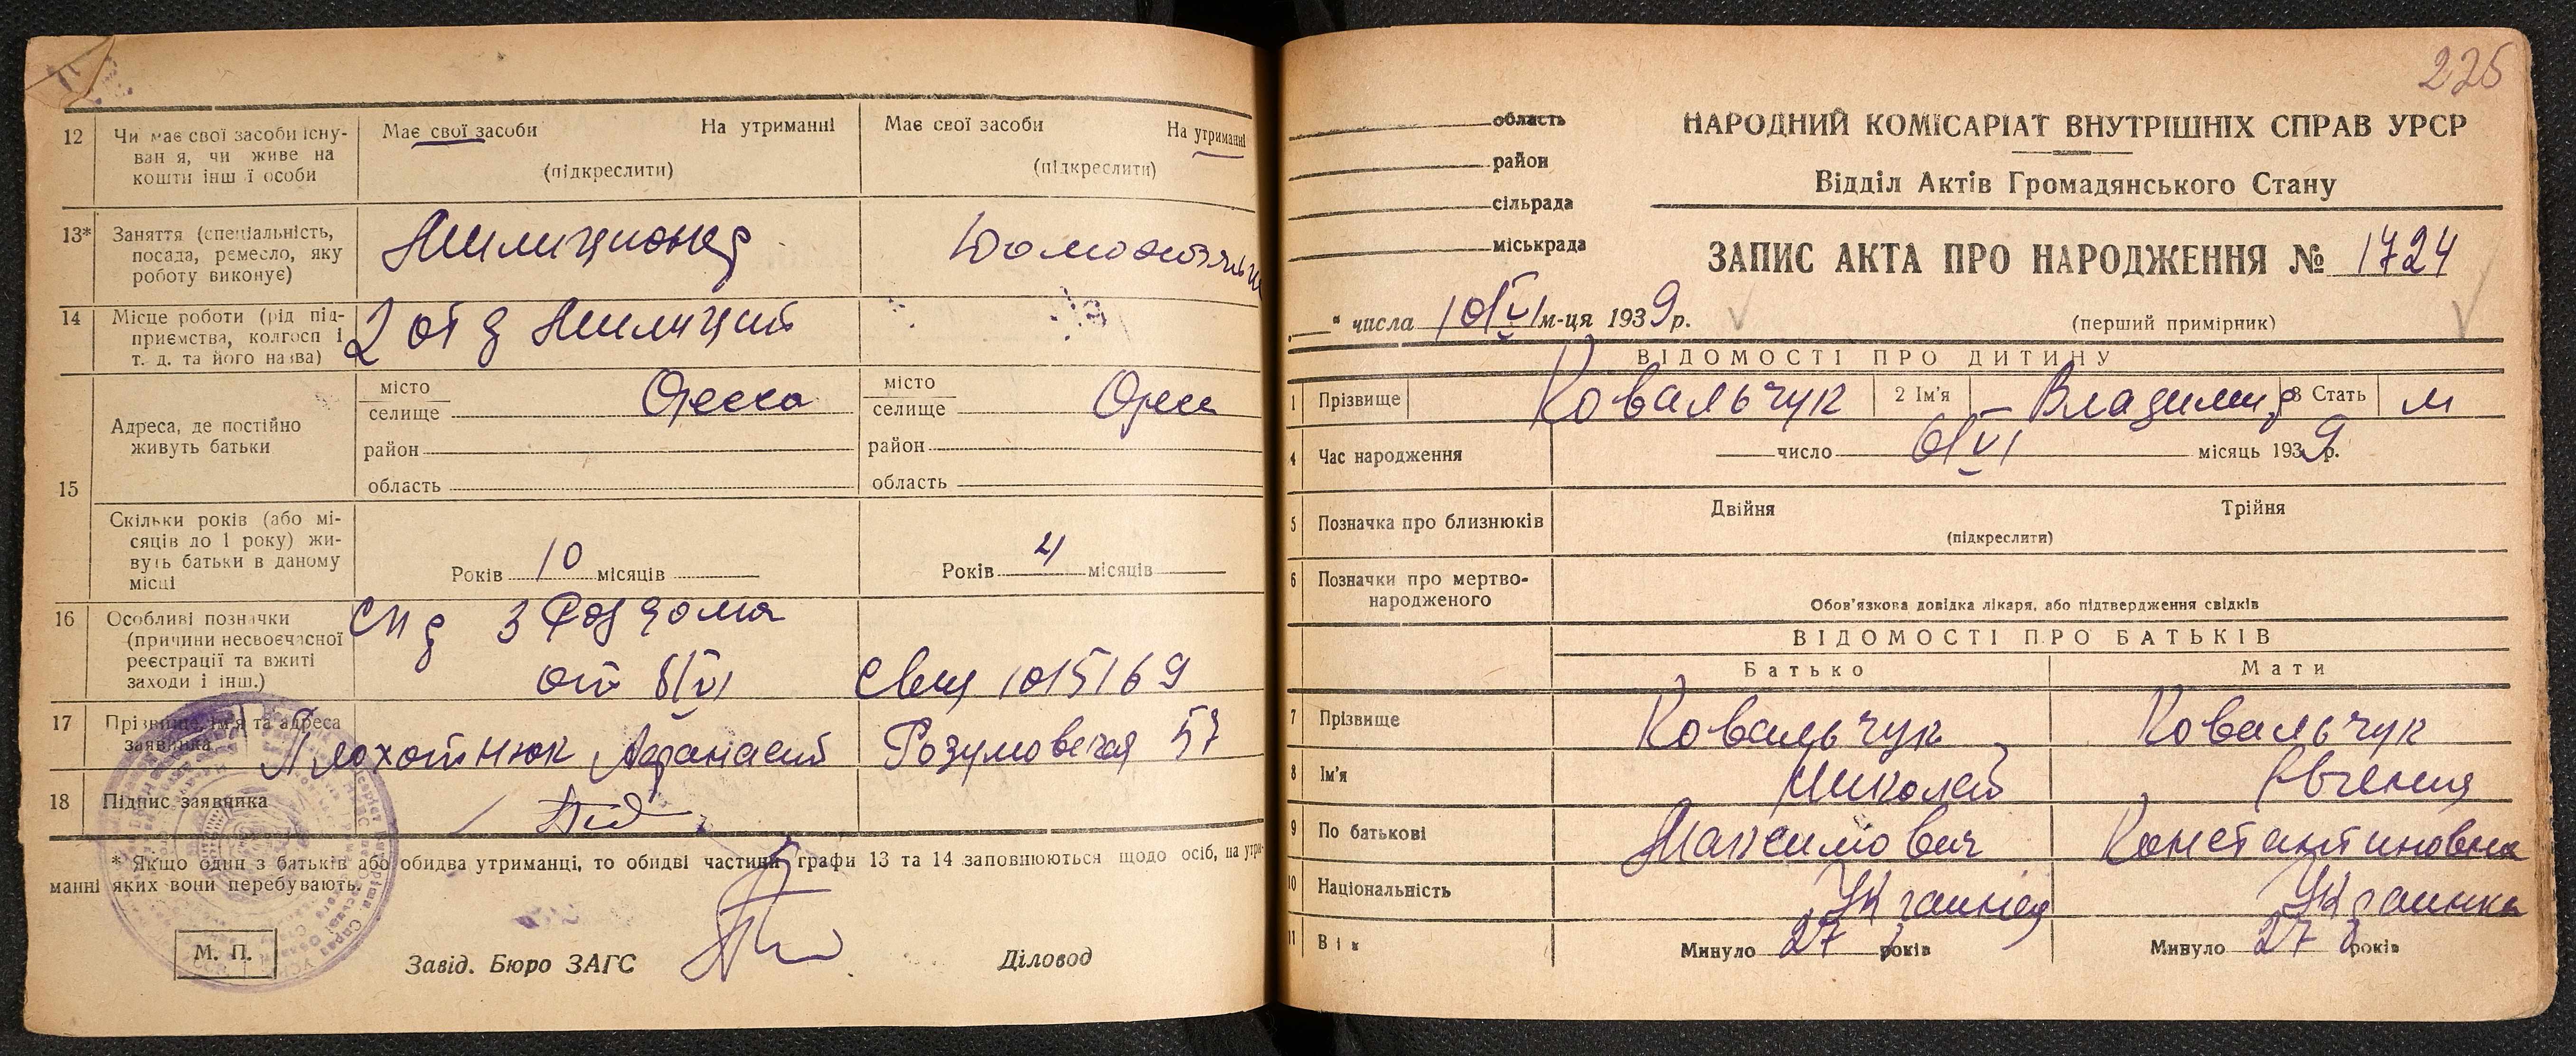 12 Чи має свої засоби існу-
ван я, чи живе на
кошти інш ї особи
Має свої засоби На утриманні
(підкреслити)
Має свої засоби На утриманні
(підкреслити)
13* Заняття (спеціальність,
посада, ремесло, яку
роботу виконує)
Милиционер
14 Місце роботи (рід під-
приємства, колгосп і
т. д. та його назва)
2 отд Милиции
15
Адреса, де постійно
живуть батьки
місто
селище Одесса
район
область
місто
селище Одес
район
область
Скільки років (або мі-
сяців до 1 року) жи-
вуть батьки в даному
місці
Років 10 місяців
Років 4 місяців
16 Особливі позначки
(причини несвоєчасної
реєстрації та вжиті
заходи і інш.)
3 Роддома
от 8/VI
Свид 1015169
17 Прізвище, ім'я та адреса
заявника
Плохотнюк Афанасий Розумовская 57
18 Підпис заявника
* Якщо один з батьків або обидва утриманці, то обидві частини графи 13 та 14 заповнюються щодо осіб, на утри-
манні яких вони перебувають.
М. П.
Завід. Бюро ЗАГС
Діловод
225
область
район
сільрада
міськрада
НАРОДНИЙ КОМІСАРІАТ ВНУТРІШНІХ СПРАВ УРСР
Відділ Актів Громадянського Стану
ЗАПИС АКТА ПРО НАРОДЖЕННЯ № 1724
" числа 10/VI м-ця 1939 р.
(перший примірник)
ВІДОМОСТІ ПРО ДИТИНУ
1 Прізвище Ковальчук 2 Ім'я Владимир 3 Стать м
4 Час народження число 6/VI місяць 1939 р.
5 Позначка про близнюків Двійня Трійня
(підкреслити)
6 Позначки про мертво-
народженого
Обов'язкова довідка лікаря, або підтвердження свідків
ВІДОМОСТІ ПРО БАТЬКІВ
Батько Мати
7 Прізвище Ковальчук Ковальчук
8 Ім'я Николай Евгения
9 По батькові Максимович Константиновна
10 Національність Украинец Украинка
11 Вік Минуло 27 років Минуло 27 років